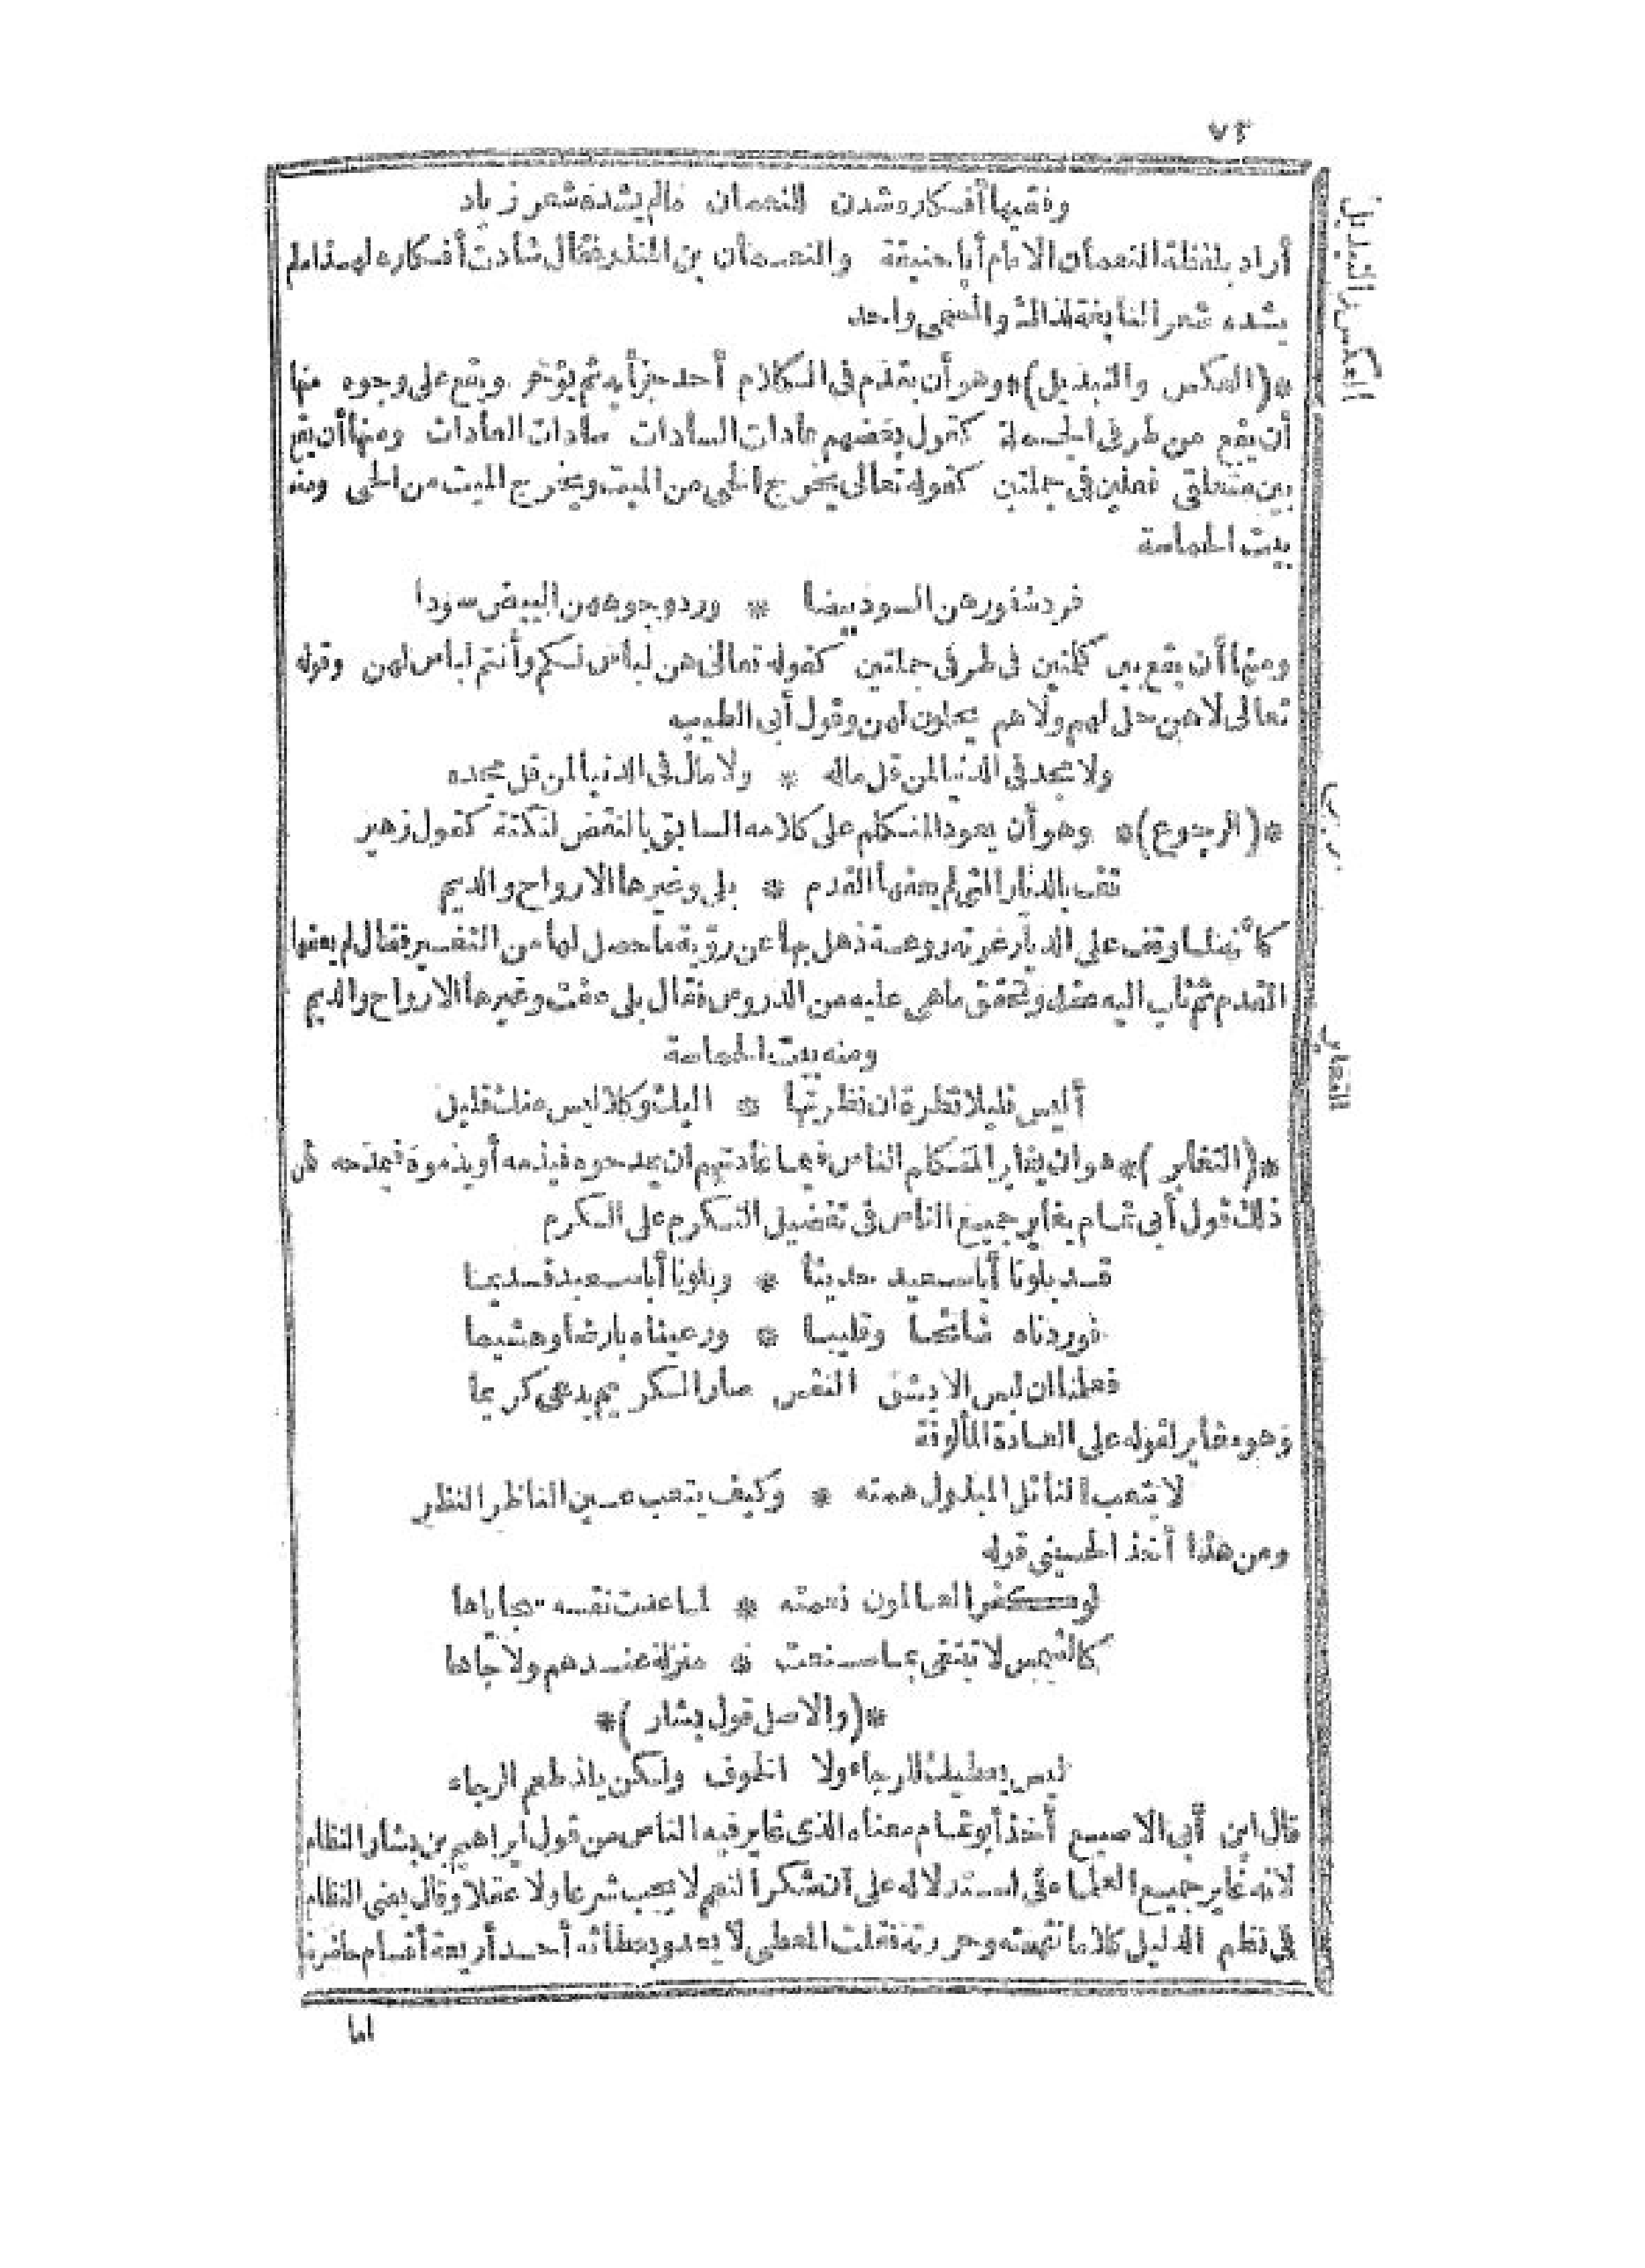 ٧٤
وفقيها أفكاره شدن للنعمان مالم يشده شعر زياد
أراد بلفظة النعمان الامام أبا حنيفة والنعمان بن المنذر فقال شادت أفكاره لهذا ما لم
يشده شعر النابغة لذاك والمعنى واحد
*(العكس والتبديل)* وهو أن يقدم فى الكلام أحد جزأيه ثم يؤخر ويقع على وجوه منها
أن يقع من طرفى الجملة كقول بعضهم عادات السادات سادات العادات ومنها أن يقع
بين متعلقى فعلين فى جملتين كقوله تعالى يخرج الحى من الميت ويخرج الميت من الحى ومنه
بيت الحماسة
فرد شعورهن السود بيضا * ورد وجوههن البيض سودا
ومنها أن يقع بين كلمتين فى طرفى جملتين كقوله تعالى هن لباس لكم وأنتم لباس لهن وقوله
تعالى لاهن حل لهم ولا هم يحلون لهن وقول أبى الطيب
ولا مجد فى الدنيا لمن قل ماله * ولا مال فى الدنيا لمن قل مجده
*(الرجوع)* وهو أن يعود المتكلم على كلامه السابق بالنقض لنكتة كقول زهير
قف بالديار التى لم يعفها القدم * بلى وغيرها الارواح والديم
كأنه لما وقف على الديار عرته روعة ذهل بها عن رؤية ما حصل لها من التغيير فقال لم يعفها
القدم ثم ثاب اليه عقله وتحقق ما هى عليه من الدروس فقال بلى عفت وغيرها الارواح والديم
ومنه بيت الحماسة
أليس قليلا نظرة ان نظرتها * اليك وكلا ليس منك قليل
*(التغاير)* هو ان يغاير المتكلم الناس فيما عادتهم ان يمدحوه فيذمه أو يذموه فيمدحه فن
ذلك قول أبى تمام يغاير جميع الناس فى تفضيل التكرم على الكرم
قد بلونا أبا سعيد حديثا * وبلونا أبا سعيد قديما
فوردناه سائحا وقليبا * ورعيناه بارضا وهشيما
فعلمنا ان ليس الا بشق النفس صار الكريم يدعى كريما
وهو مغاير لقوله على العادة المألوفة
لا يتعب النائل المبذول همته * وكيف يتعب عين الناظر النظر
ومن هذا أخذ الحسينى قوله
لو كفر العالمون نعمته * لما عدت نفسه سجاياها
كالشمس لا تبتغى بما صنعت * منزلة عندهم ولا جاها
*(والاصل قول بشار)*
ليس يعطيك للرجاء ولا الخوف ولكن يلذ طعم الرجاء
قال ابن أبى الاصبع أخذ أبو تمام معناه الذى غاير فيه الناس من قول ابراهيم بن بشار النظام
لانه غاير جميع العلماء فى استدلاله على ان شكر المنعم لا يجب شرعا ولا عقلا وقال يعنى النظام
فى نظم الدليل كلاما فهمته وحررته فقلت المعطى لا يعدو بعطائه أحد أربعة أقسام حاضرة
اما
العكس والتبديل
التغاير